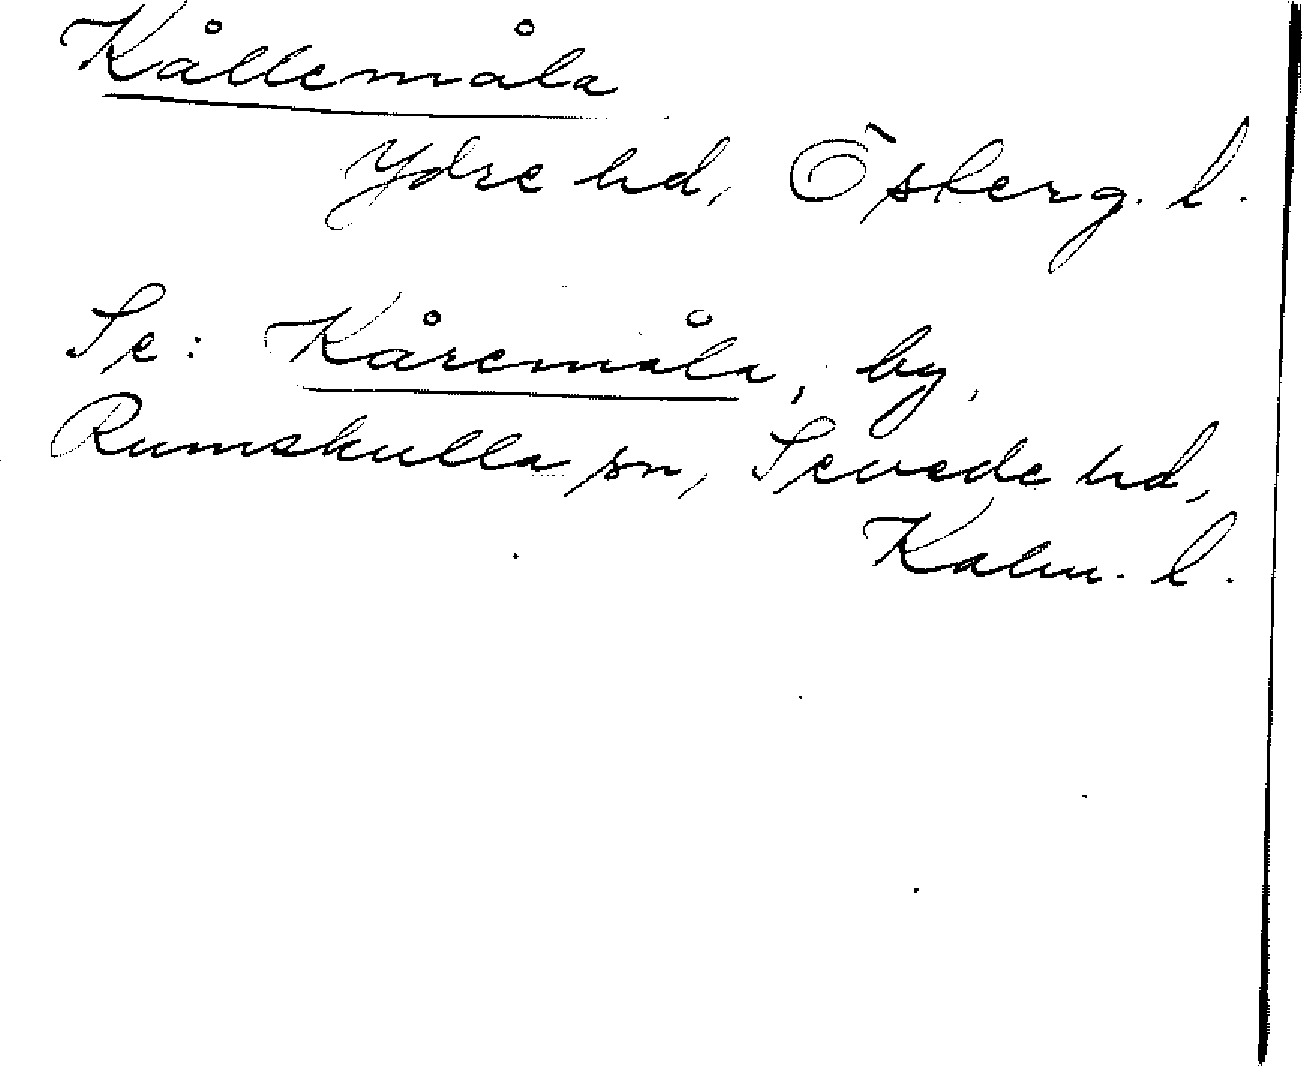 Kållemåla
Ydre hd, Österg. l.
Se: Kåremåla, by,
Rumskulla sn, Sevede hd,
Kalm. l.